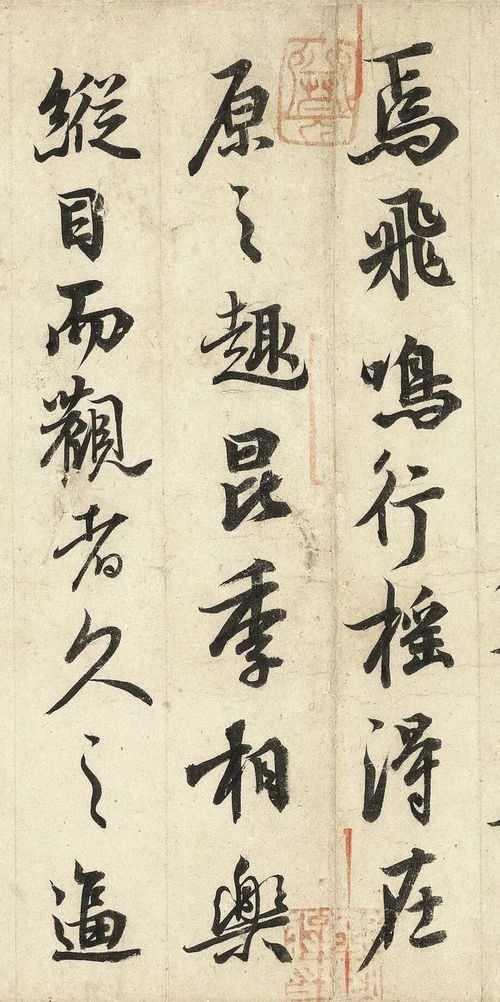 焉飛鳴行搖得在
原之趣昆季相樂
縱目而觀者久之逼